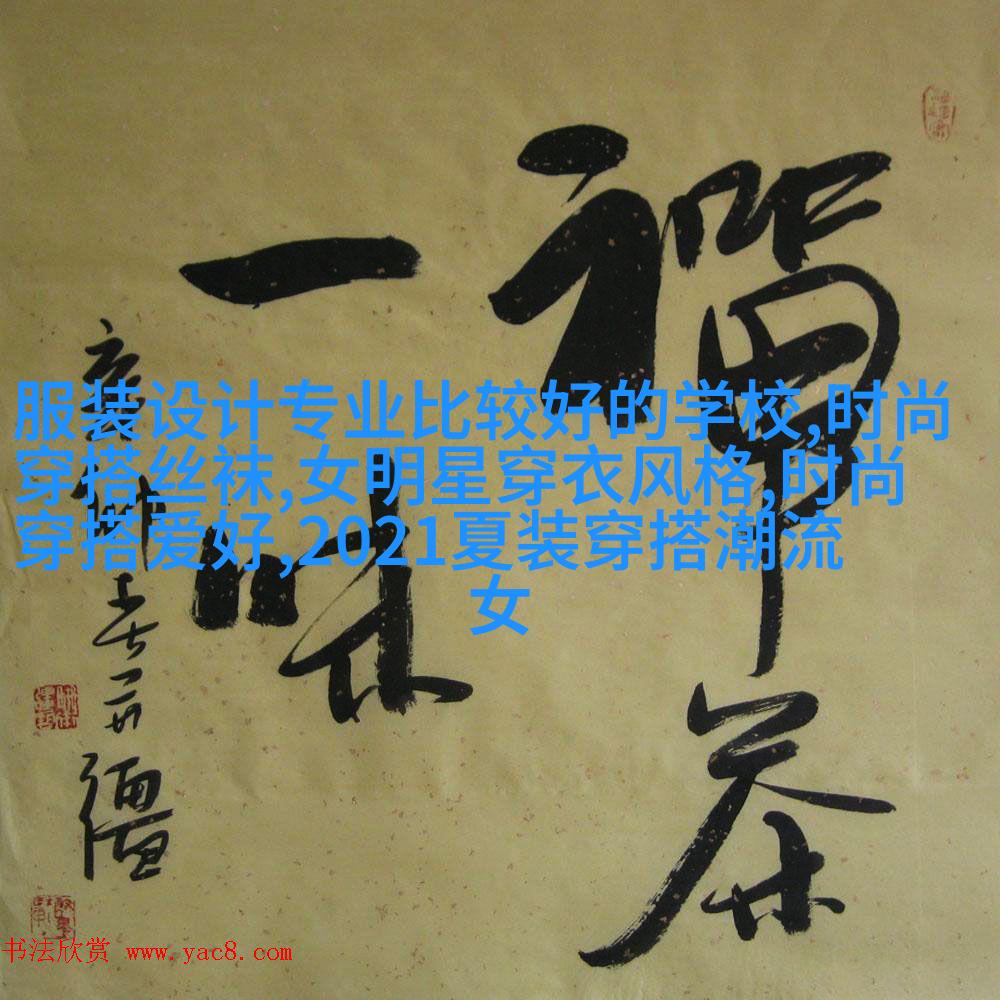 禪茶
一味
服装设计专业比较好的学校,时尚
穿搭丝袜,女明星穿衣风格,时尚
穿搭爱好,2021夏装穿搭潮流
女
书法欣赏 www.yac8.com